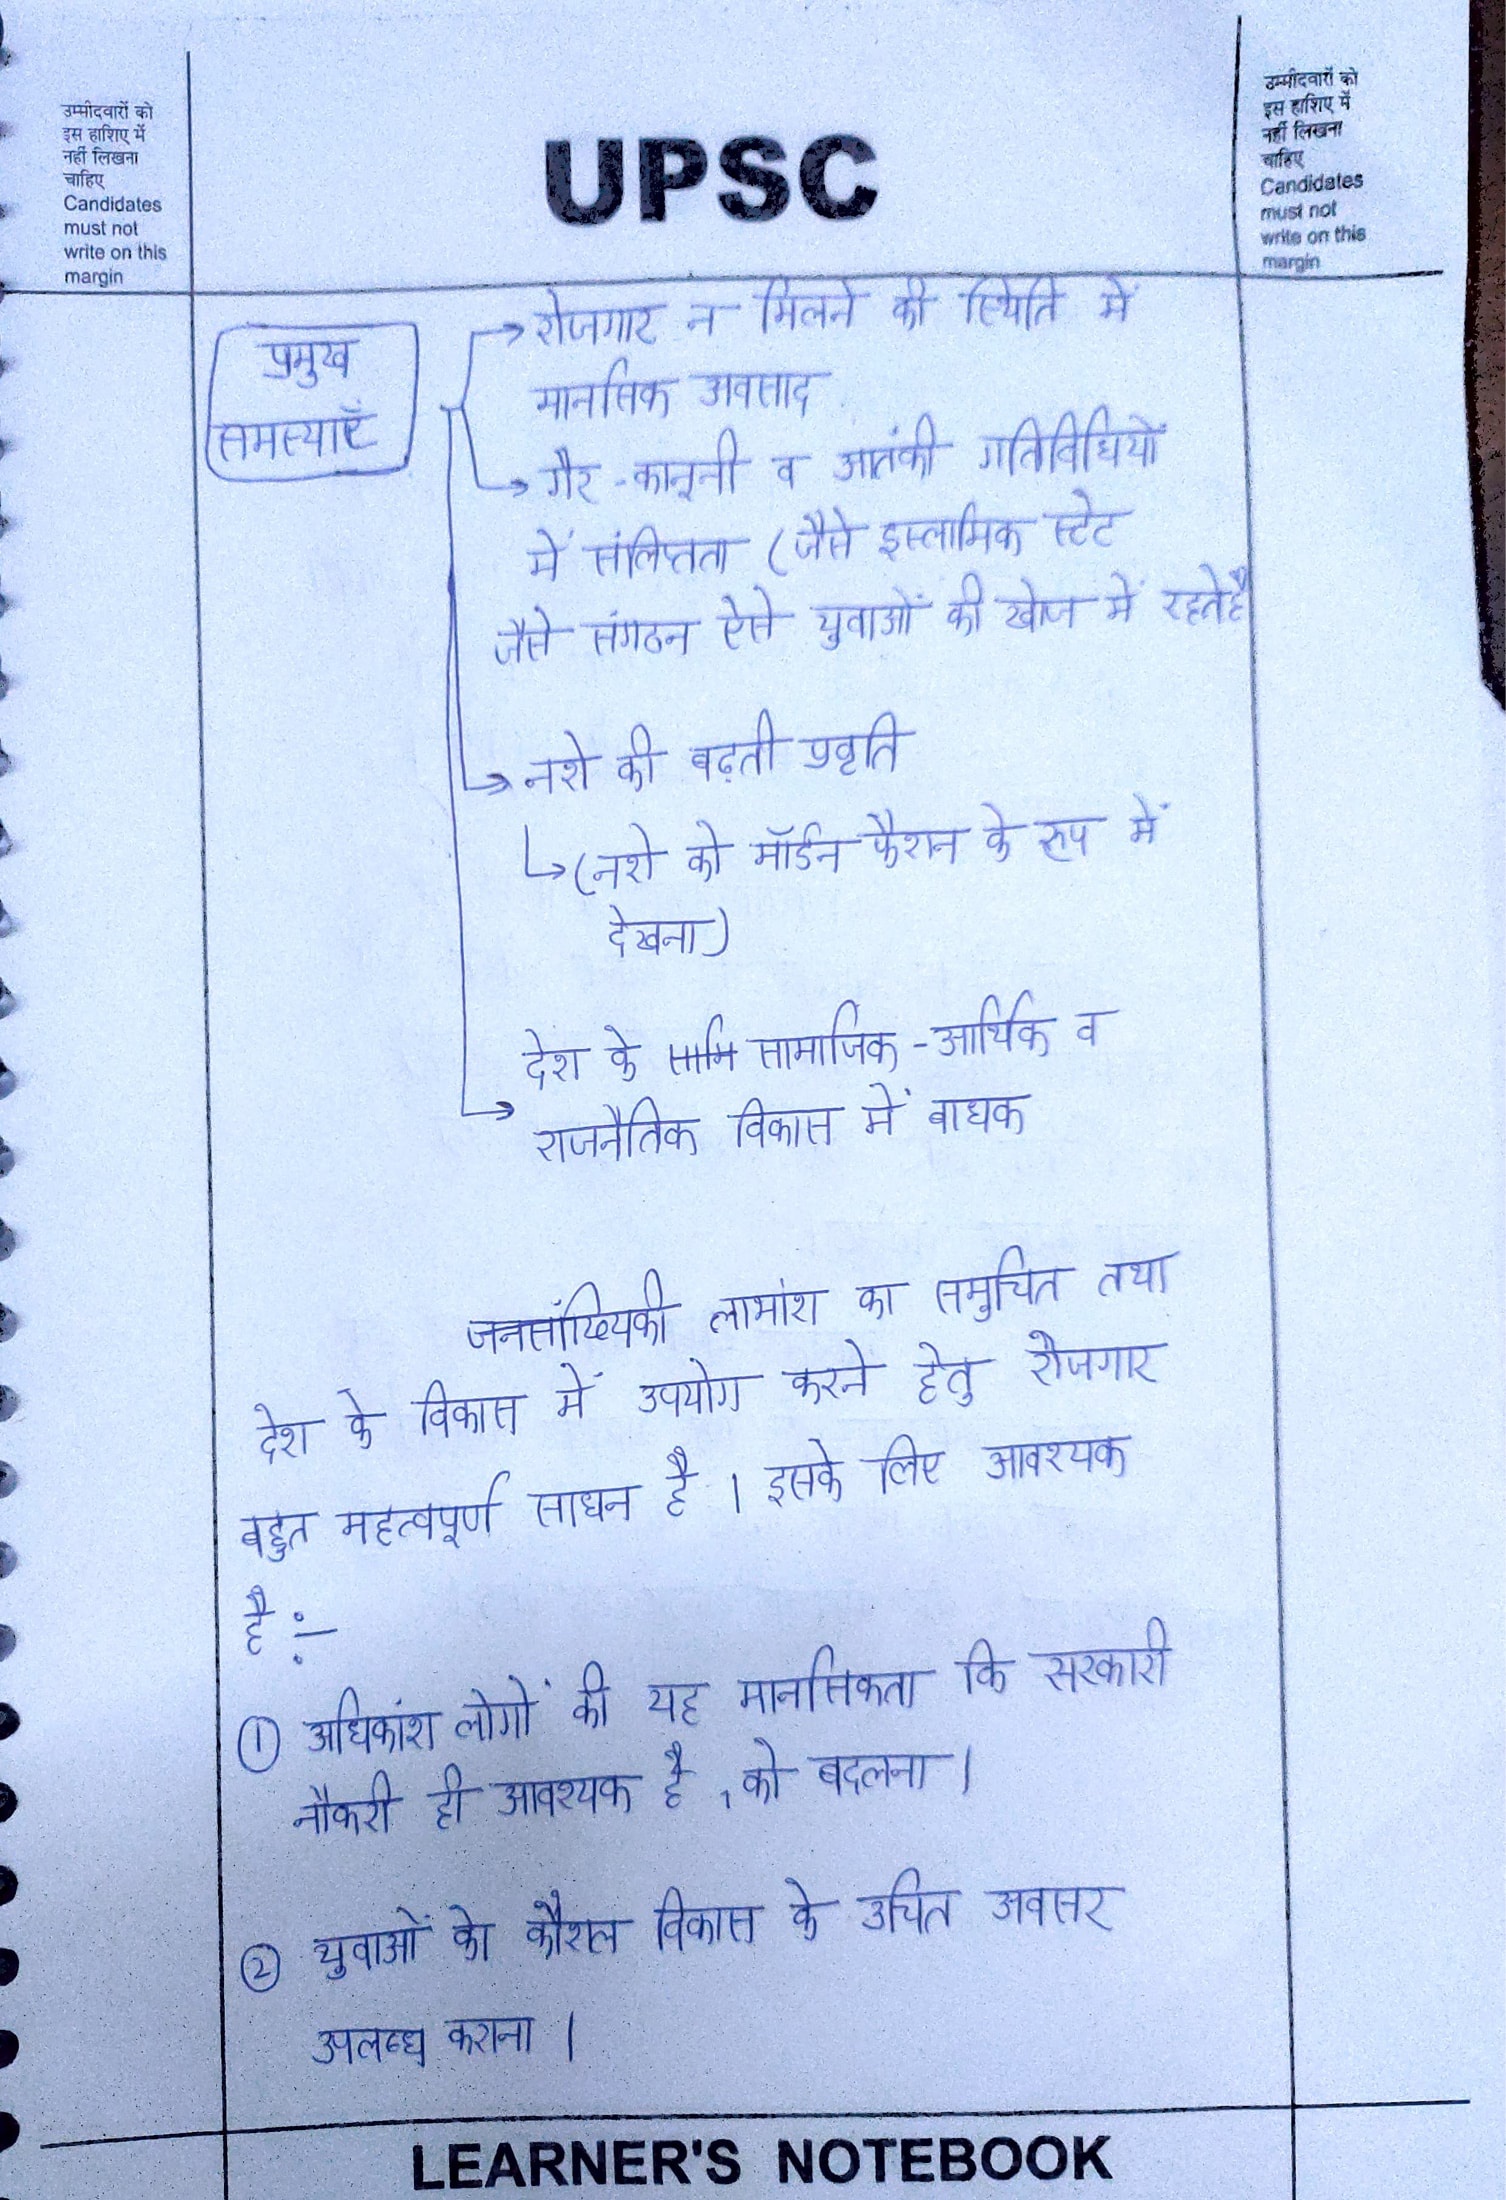 उम्मीदवारों को
इस हाशिए में
नहीं लिखना
चाहिए
Candidates
must not
write on this
margin
UPSC
उम्मीदवारों को
इस हाशिए में
नहीं लिखना
चाहिए
Candidates
must not
write on this
margin
प्रमुख
समस्याएँ
→ रोजगार न मिलने की स्थिति में
मानसिक अवसाद
→ गैर-कानूनी व आतंकी गतिविधियों
में संलिप्तता (जैसे इस्लामिक स्टेट
जैसे संगठन ऐसे युवाओं की खोज में रहते हैं
→ नशे की बढ़ती प्रवृति
↳ (नशे को मॉर्डन फैशन के रूप में
देखना)
देश के सामि सामाजिक-आर्थिक व
→ राजनैतिक विकास में बाधक
जनसांख्यिकी लाभांश का समुचित तथा
देश के विकास में उपयोग करने हेतु रोजगार
बहुत महत्वपूर्ण साधन है । इसके लिए आवश्यक
है :-
① अधिकांश लोगों की यह मानसिकता कि सरकारी
नौकरी ही आवश्यक है, को बदलना ।
② युवाओं को कौशल विकास के उचित अवसर
उपलब्ध कराना ।
LEARNER'S NOTEBOOK